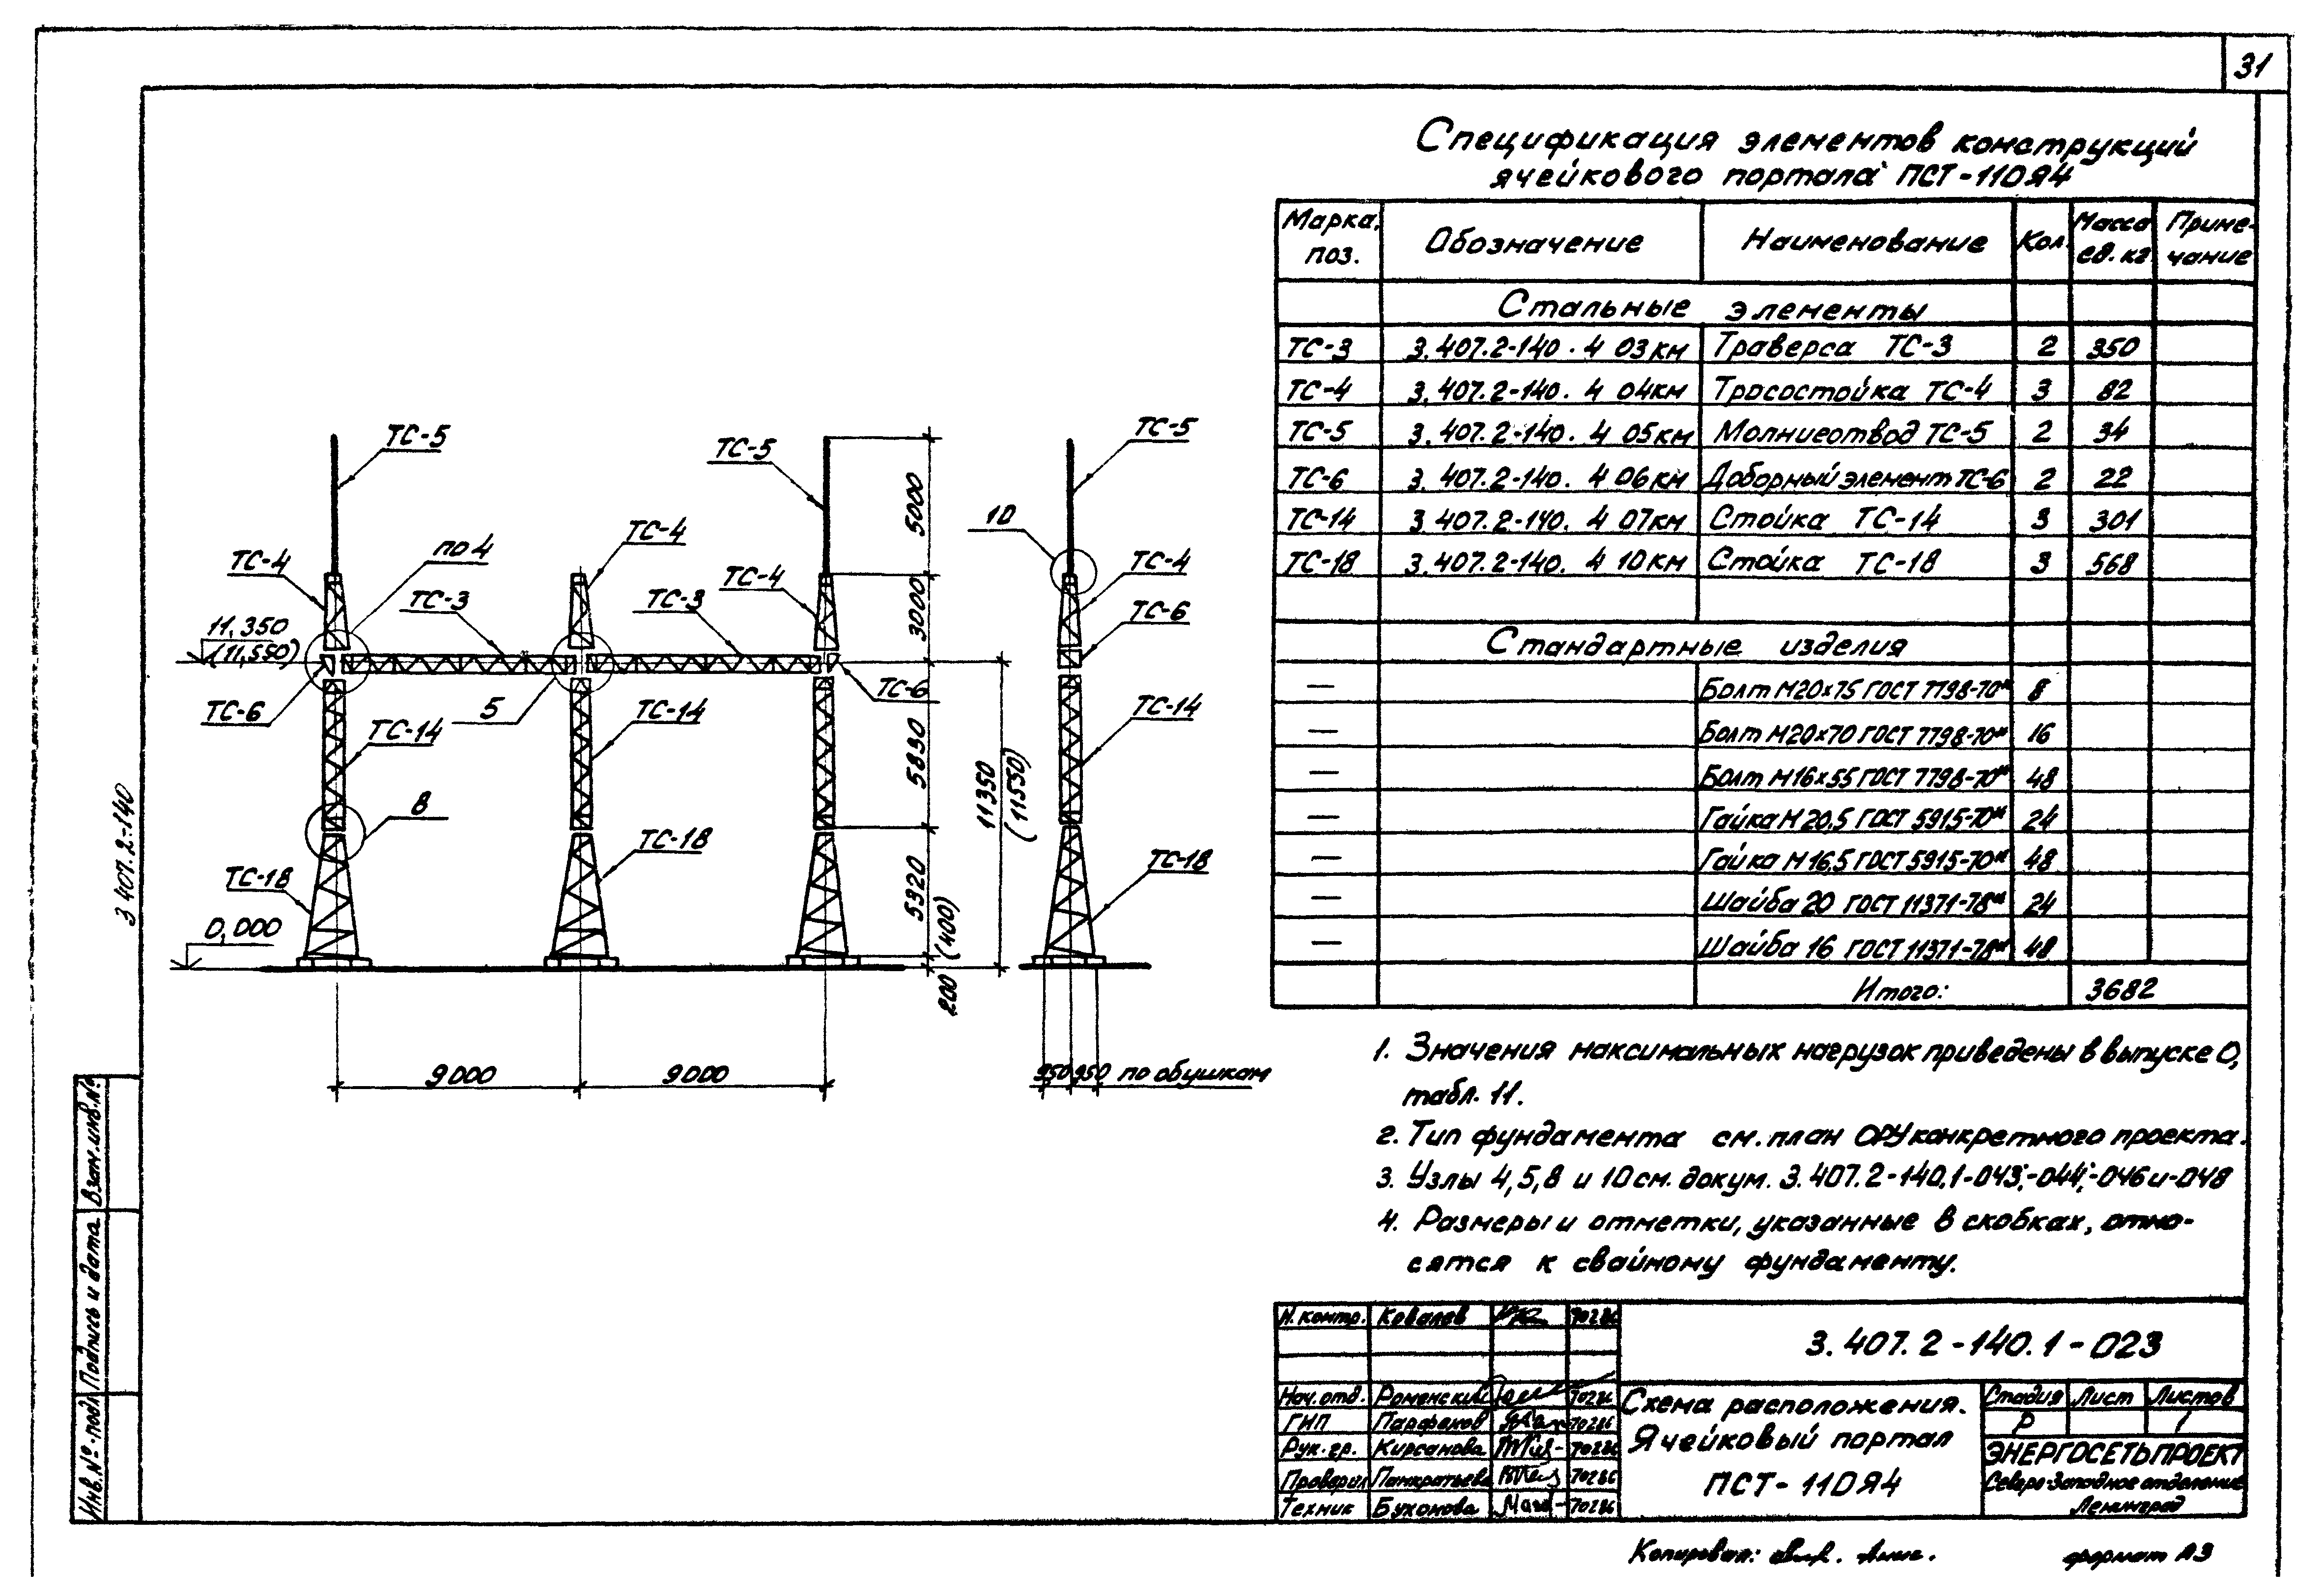 31
Спецификация элементов конструкций
ячейкового портала ПСТ-110Я4
Марка, поз. Обозначение Наименование Кол. Масса ед. кг Приме-чание
Стальные элементы
ТС-3 3.407.2-140.4 03КМ Траверса ТС-3 2 350
ТС-4 3.407.2-140.4 04КМ Тросостойка ТС-4 3 82
ТС-5 3.407.2-140.4 05КМ Молниеотвод ТС-5 2 34
ТС-6 3.407.2-140.4 06КМ Доборный элемент ТС-6 2 22
ТС-14 3.407.2-140.4 07КМ Стойка ТС-14 3 301
ТС-18 3.407.2-140.4 10КМ Стойка ТС-18 3 568
Стандартные изделия
— Болт М20×75 ГОСТ 7798-70* 8
— Болт М20×70 ГОСТ 7798-70* 16
— Болт М16×55 ГОСТ 7798-70* 48
— Гайка М20.5 ГОСТ 5915-70* 24
— Гайка М16.5 ГОСТ 5915-70* 48
— Шайба 20 ГОСТ 11371-78* 24
— Шайба 16 ГОСТ 11371-78* 48
Итого: 3682
ТС-5
ТС-5
ТС-5
ТС-4
по 4
ТС-4
ТС-4
10
ТС-4
ТС-3
ТС-3
ТС-6
11,350
(11,550)
ТС-6
5
ТС-6
ТС-14
ТС-14
ТС-14
8
ТС-18
ТС-18
ТС-18
0,000
5000
3000
5830
5320
200 (400)
11350
(11550)
9000
9000
950 950 по обушкам
3.407.2-140
1. Значения максимальных нагрузок приведены в выпуске 0,
табл. 11.
2. Тип фундамента см. план ОРУ конкретного проекта.
3. Узлы 4, 5, 8 и 10 см. докум. 3.407.2-140.1-043;-044;-046 и -048
4. Размеры и отметки, указанные в скобках, отно-
сятся к свайному фундаменту.
Н. контр. Ковалев
Нач. отд. Роменский
ГИП Парфенов
Рук. гр. Кирсанова
Проверил Панкратьева
Техник Буханова
3.407.2-140.1-023
Схема расположения.
Ячейковый портал
ПСТ-110Я4
Стадия Лист Листов
Р 1
ЭНЕРГОСЕТЬПРОЕКТ
Северо-Западное отделение
Ленинград
Инв. № подл. Подпись и дата Взам. инв. №
Копировал:
формат А3